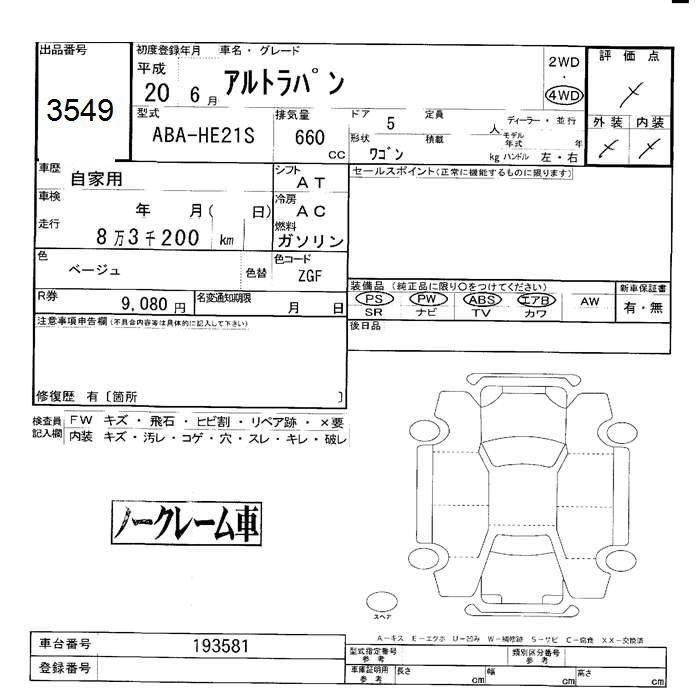 出品番号
3549
初度登録年月 車名・グレード
平成
20 6月
アルトラパン
2WD
・
4WD
評価点
外装 内装
型式
ABA-HE21S
排気量
660
CC
ドア
5
定員
人
ディーラー・並行
形状
ワゴン
積載
kg
モデル年式
年
ハンドル 左・右
車歴
自家用
シフト
AT
セールスポイント(正常に機能するものに限ります)
車検
年 月( 日)
冷房
AC
走行
8万3千200 km
燃料
ガソリン
色
ベージュ
色替
色コード
ZGF
装備品 (純正品に限り○をつけてください)
PS PW ABS エアB AW
SR ナビ TV カワ
新車保証書
有・無
R券
9,080円
名変通知期限
月 日
後日品
注意事項申告欄(不具合内容等は具体的に記入して下さい)
修復歴 有〔箇所 〕
検査員記入欄
FW キズ・飛石・ヒビ割・リペア跡・×要
内装 キズ・汚レ・コゲ・穴・スレ・キレ・破レ
ノークレーム車
スペア
A−キズ E−エクボ U−凹み W−補修跡 S−サビ C−腐食 XX−交換済
車台番号
193581
登録番号
型式指定番号
参考
類別区分番号
参考
車庫証明用
参考
長さ cm 幅 cm 高さ cm